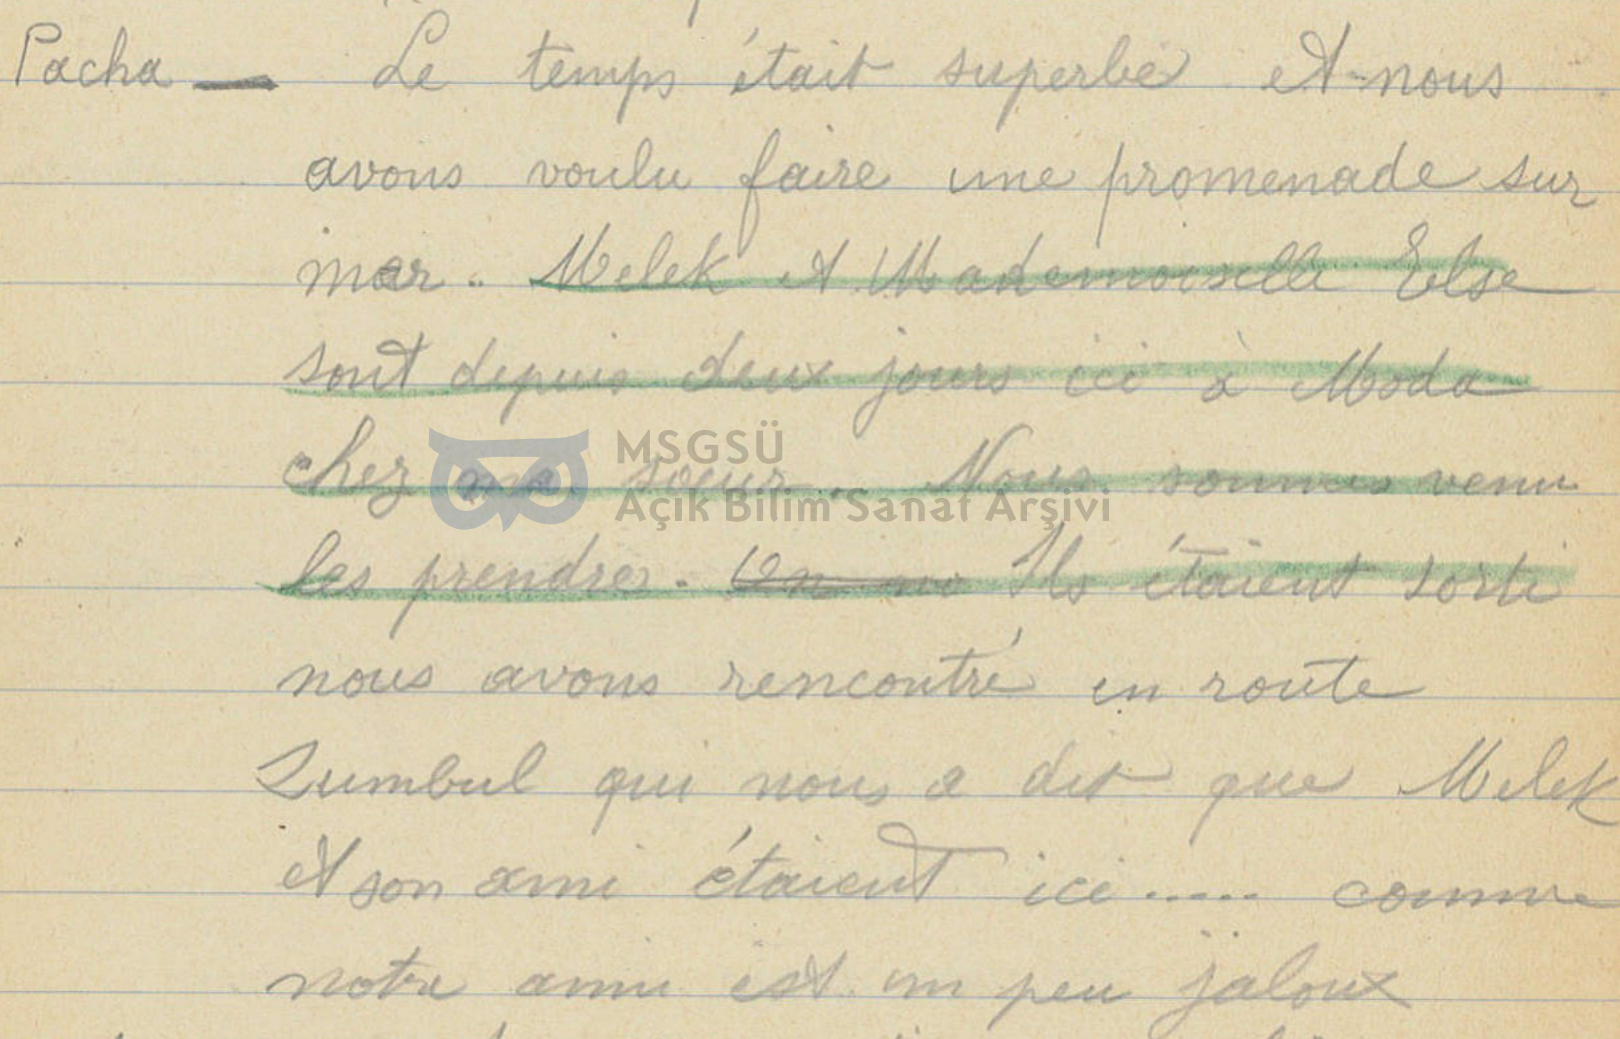 Pacha — Le temps était superbe et nous
avons voulu faire une promenade sur
mer. Melek et Mademoiselle Else
sont depuis deux jours ici à Moda
chez ma soeur. Nous sommes venu
les prendre. Ils étaient sorti
nous avons rencontré en route
Sumbul qui nous a dit que Melek
et son ami étaient ici..... comme
notre ami est un peu jaloux
MSGSÜ
Açık Bilim Sanat Arşivi